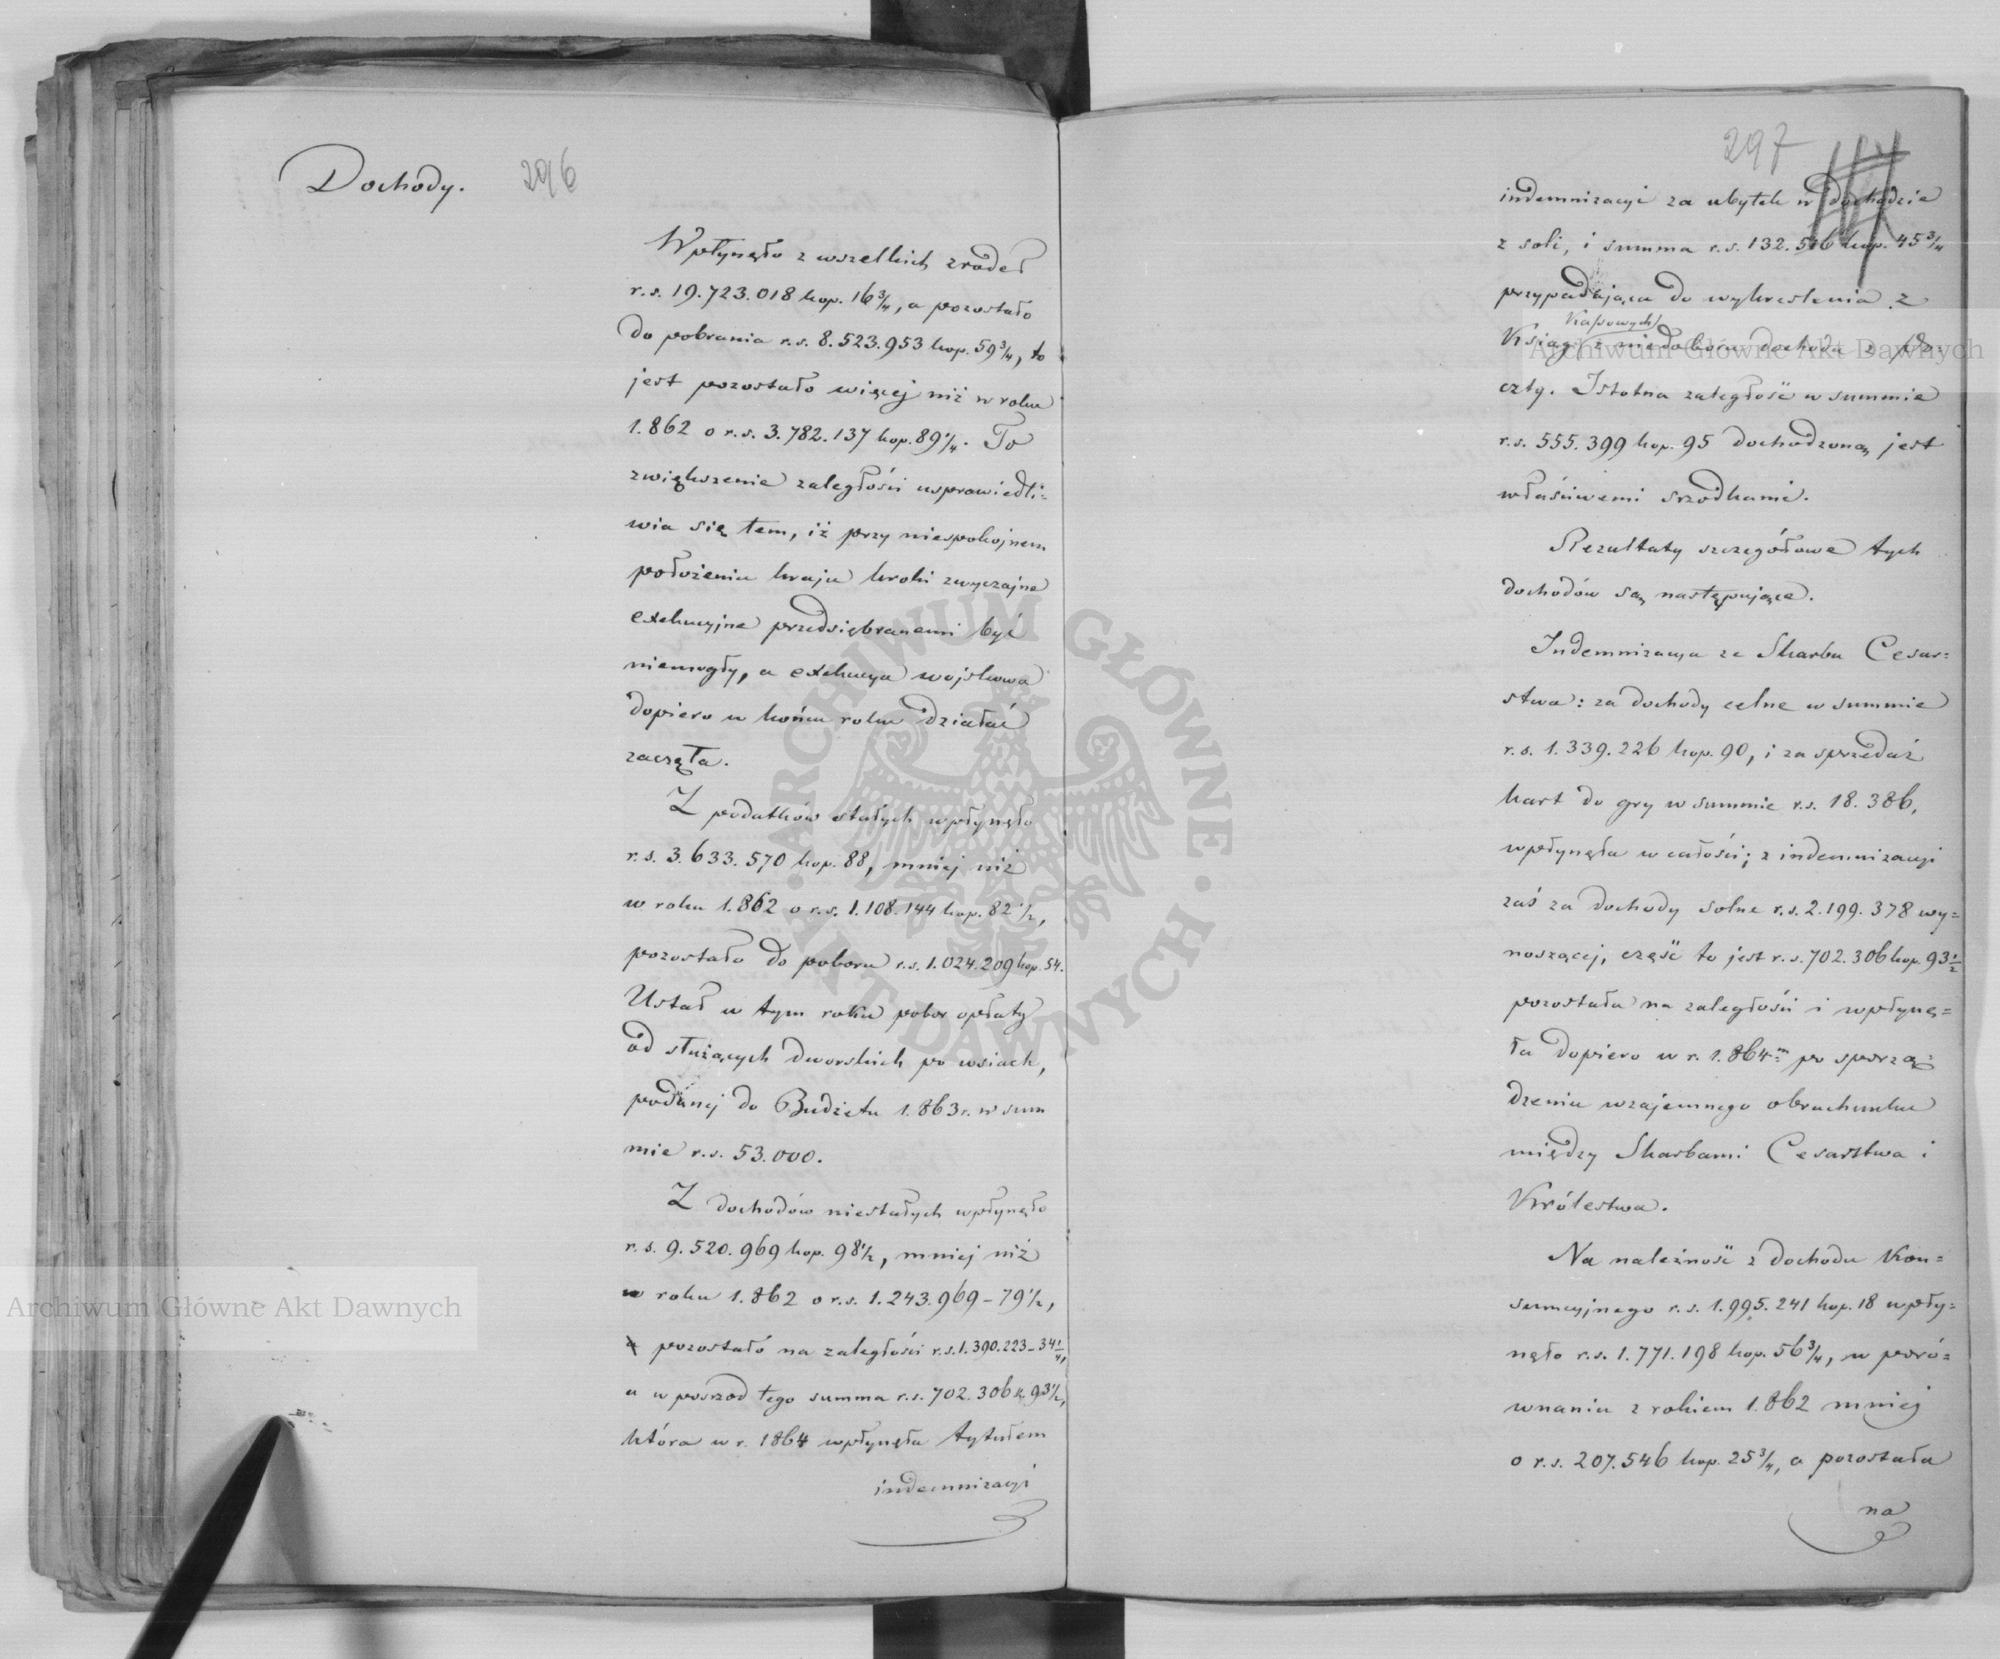 Dochody.
296
Wpłynęło z wszelkich zrodeł
r.s. 19.723.018 kop. 16 3/4, a pozostało
do pobrania r.s. 8.523.953 kop. 59 3/4, to
jest pozostało więcej niż w roku
1.862 o r.s. 3.782.137 kop. 89 1/4. To
zwiększenie zaległości usprawiedli=
wia się tem, iż przy niespokojnem
położeniu kraju kroki zwyczajne
exekucyjne przedsiębranemi być
niemogły, a exekucya wojskowa
dopiero w końcu roku działać
zaczęła.
Z podatków stałych wpłynęło
r.s. 3.633.570 kop. 88, mniej niż
w roku 1.862 o r.s. 1.108.144 kop. 82 1/2,
pozostało do poboru r.s. 1.024.209 kop. 54.
Ustał w tym roku pobor opłaty
od służących dworskich po wsiach,
podanej do Budżetu 1.863 r. w sum
mie r.s. 53.000.
Z dochodów niestałych wpłynęło
r.s. 9.520.969 kop. 98 1/2, mniej niż
w roku 1.862 o r.s. 1.243.969 - 79 1/2,
pozostało na zaległości r.s. 1.390.223 - 34 1/4,
a w posrzod tego summa r.s. 702.306 k. 93 1/2,
która w r. 1864 wpłynęła tytułem
indemnizacyi
297
indemnizacyi za ubytek w dochodzie
z soli, i summa r.s. 132.516 kop. 45 3/4
przypadająca do wykreslenia z
Kassowych
Ksiąg z niedoboru dochodu z po=
czty. Istotna zaległość w summie
r.s. 555.399 kop. 95 dochodzoną jest
właściwemi srzodkami.
Rezultaty szczegółowe tych
dochodów są następujące.
Indemnizacya ze Skarbu Cesar=
stwa: za dochody celne w summie
r.s. 1.339.226 kop. 90, i za sprzedaż
kart do gry w summie r.s. 18.386,
wpłynęła w całości; z indemnizacyi
zaś za dochody solne r.s. 2.199.378 wy=
noszącej, część to jest r.s. 702.306 kop. 93 1/2
pozostała na zaległości i wpłynę=
ła dopiero w r. 1.864m po sporzą=
dzeniu wzajemnego obrachunku
między Skarbami Cesarstwa i
Królestwa.
Na należność z dochodu Kon=
sumcyjnego r.s. 1.995.241 kop. 18 wpły=
nęło r.s. 1.771.198 kop. 56 3/4, w poró=
wnaniu z rokiem 1.862 mniej
o r.s. 207.546 kop. 25 3/4, a pozostała
na
Archiwum Główne Akt Dawnych
Archiwum Główne Akt Dawnych
ARCHIWUM GŁÓWNE · AKT DAWNYCH ·